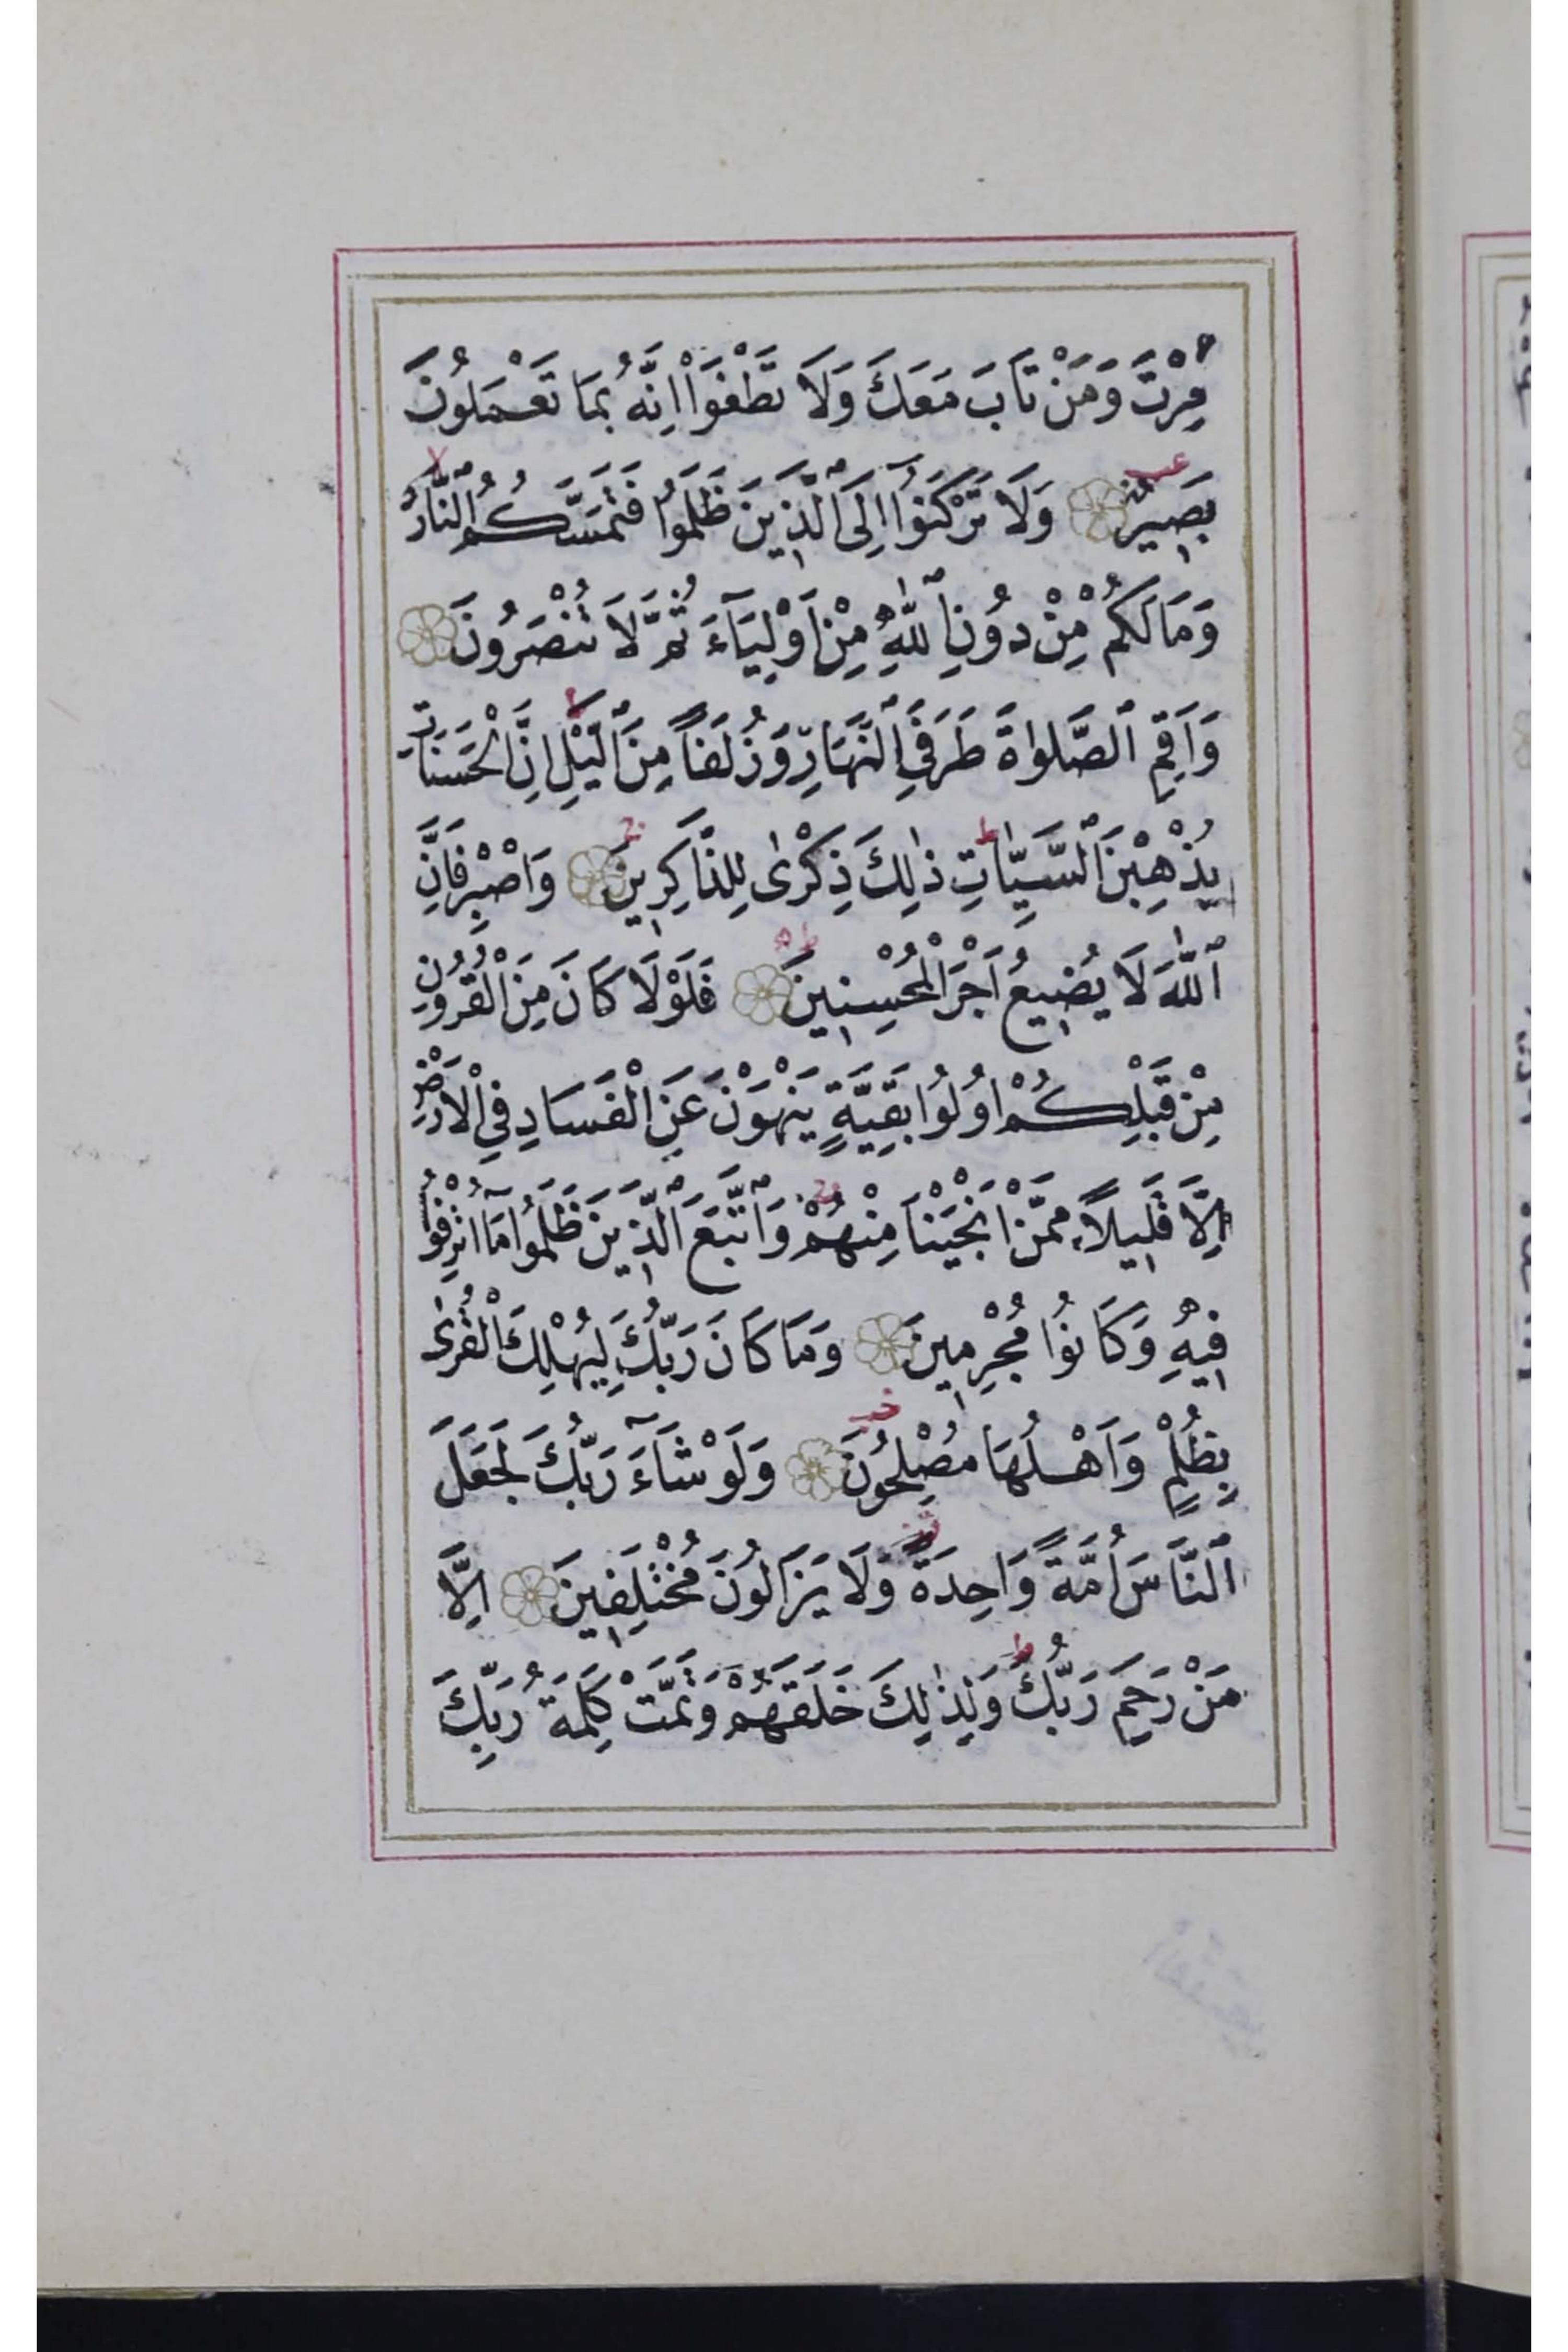 مِرْتَ وَمَنْ تَابَ مَعَكَ وَلَا تَطْغَوْا اِنَّهُ بِمَا تَعْمَلُونَ
بَصِيرٌ وَلَا تَرْكَنُوٓا اِلَى ٱلَّذِينَ ظَلَمُوا فَتَمَسَّكُمُ ٱلنَّارُ
وَمَا لَكُمْ مِنْ دُونِ ٱللّٰهِ مِنْ اَوْلِيَآءَ ثُمَّ لَا تُنْصَرُونَ
وَاَقِمِ ٱلصَّلٰوةَ طَرَفَيِ ٱلنَّهَارِ وَزُلَفًا مِنَ ٱلَّيْلِ اِنَّ الْحَسَنَاتِ
يُذْهِبْنَ ٱلسَّيِّاٰتِ ذٰلِكَ ذِكْرٰى لِلذَّاكِرِينَ وَاصْبِرْ فَاِنَّ
ٱللّٰهَ لَا يُضِيعُ اَجْرَ الْمُحْسِنِينَ فَلَوْلَا كَانَ مِنَ الْقُرُونِ
مِنْ قَبْلِكُمْ اُولُوا بَقِيَّةٍ يَنْهَوْنَ عَنِ الْفَسَادِ فِي الْاَرْضِ
اِلَّا قَلِيلًا مِمَّنْ اَنْجَيْنَا مِنْهُمْ وَٱتَّبَعَ ٱلَّذِينَ ظَلَمُوا مَٓا اُتْرِفُوا
فِيهِ وَكَانُوا مُجْرِمِينَ وَمَا كَانَ رَبُّكَ لِيُهْلِكَ الْقُرٰى
بِظُلْمٍ وَاَهْلُهَا مُصْلِحُونَ وَلَوْ شَآءَ رَبُّكَ لَجَعَلَ
ٱلنَّاسَ اُمَّةً وَاحِدَةً وَلَا يَزَالُونَ مُخْتَلِفِينَ اِلَّا
مَنْ رَحِمَ رَبُّكَ وَلِذٰلِكَ خَلَقَهُمْ وَتَمَّتْ كَلِمَةُ رَبِّكَ